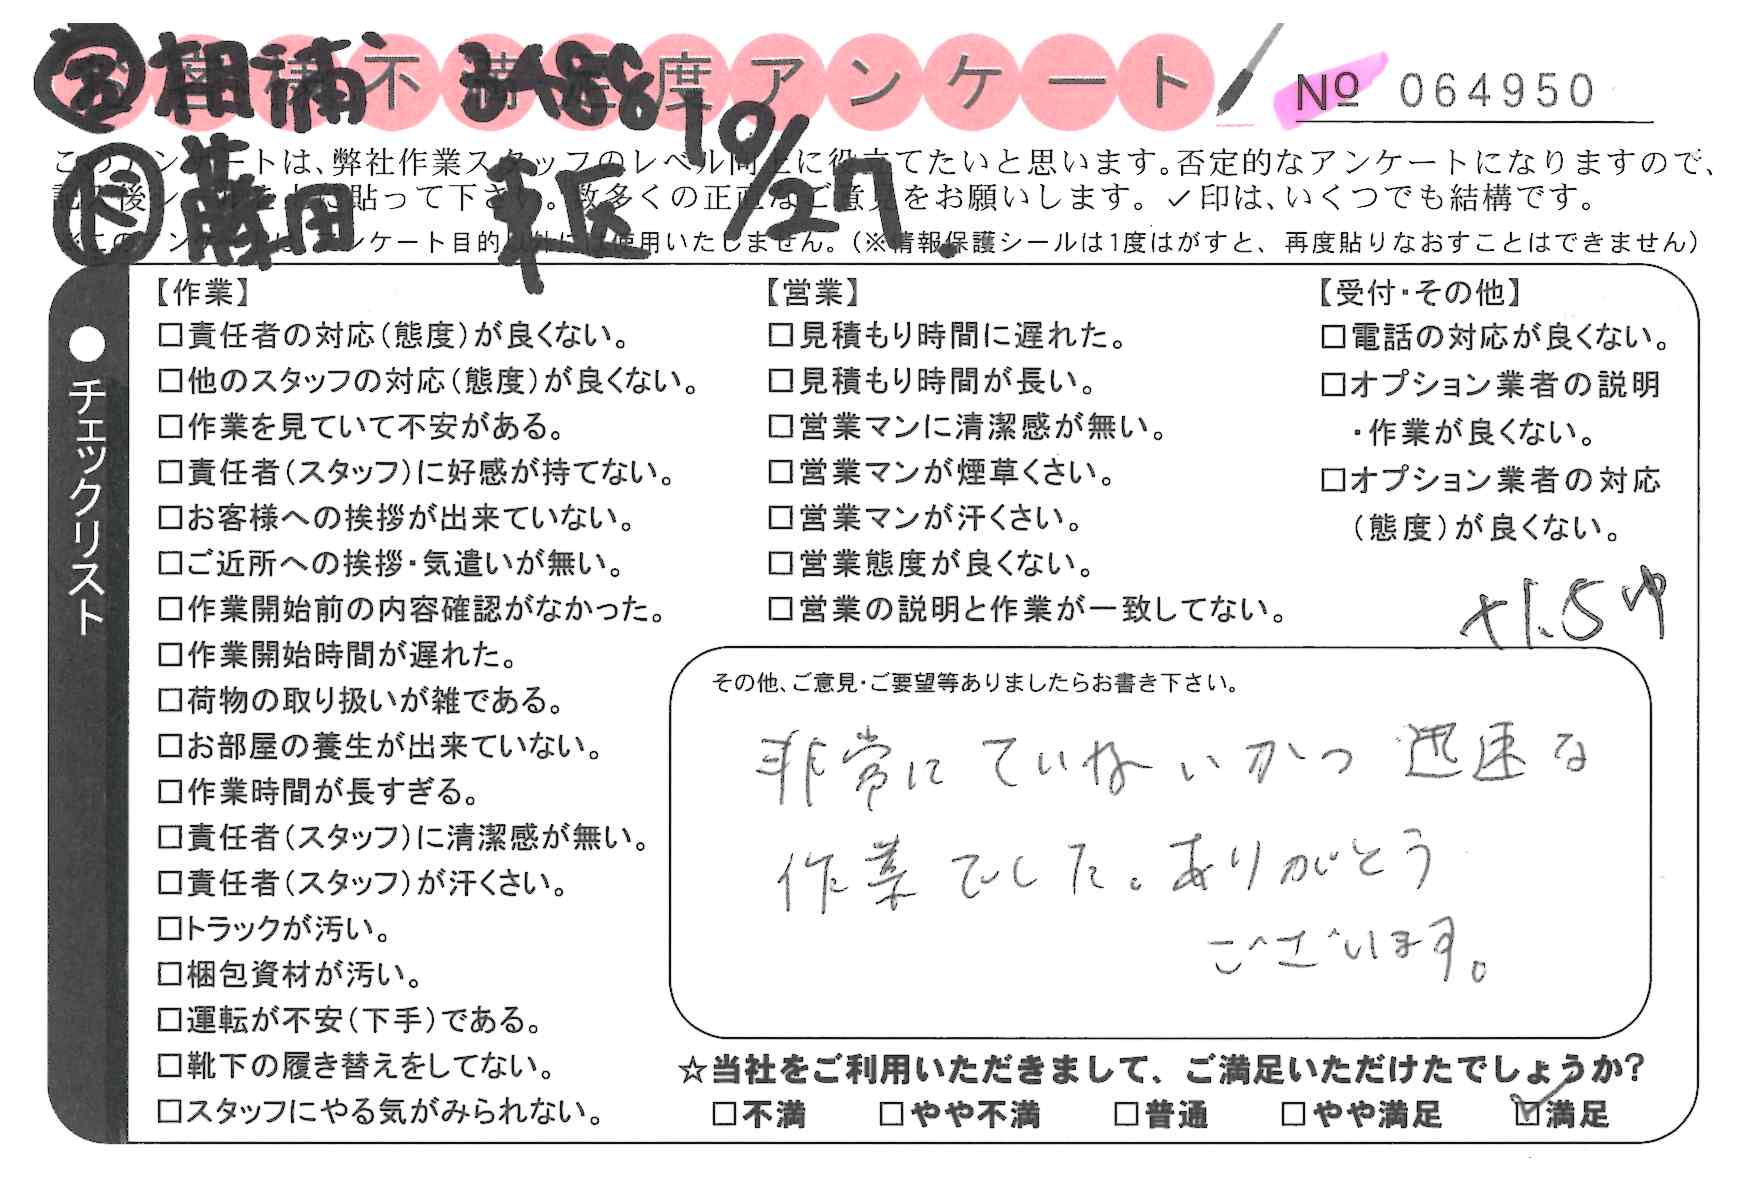 不 度アンケート
№ 064950
相浦 10/27
藤田
このアンケートは、弊社作業スタッフのレベル向上に役立てたいと思います。否定的なアンケートになりますので、
記入後シールを上に貼って下さい。数多くの正直なご意見をお願いします。✓印は、いくつでも結構です。
※このアンケートは、アンケート目的以外には使用いたしません。(※情報保護シールは1度はがすと、再度貼りなおすことはできません)
●チェックリスト
【作業】
□責任者の対応(態度)が良くない。
□他のスタッフの対応(態度)が良くない。
□作業を見ていて不安がある。
□責任者(スタッフ)に好感が持てない。
□お客様への挨拶が出来ていない。
□ご近所への挨拶・気遣いが無い。
□作業開始前の内容確認がなかった。
□作業開始時間が遅れた。
□荷物の取り扱いが雑である。
□お部屋の養生が出来ていない。
□作業時間が長すぎる。
□責任者(スタッフ)に清潔感が無い。
□責任者(スタッフ)が汗くさい。
□トラックが汚い。
□梱包資材が汚い。
□運転が不安(下手)である。
□靴下の履き替えをしてない。
□スタッフにやる気がみられない。
【営業】
□見積もり時間に遅れた。
□見積もり時間が長い。
□営業マンに清潔感が無い。
□営業マンが煙草くさい。
□営業マンが汗くさい。
□営業態度が良くない。
□営業の説明と作業が一致してない。
【受付・その他】
□電話の対応が良くない。
□オプション業者の説明
・作業が良くない。
□オプション業者の対応
(態度)が良くない。
その他、ご意見・ご要望等ありましたらお書き下さい。
非常にていねいかつ 迅速な
作業でした。ありがとう
ございます。
☆当社をご利用いただきまして、ご満足いただけたでしょうか?
□不満 □やや不満 □普通 □やや満足 ☑満足